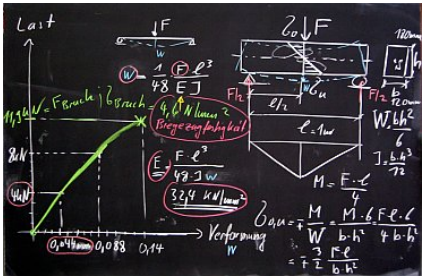 Last
F
W = 1/48 F l³ / E J
11,9 kN = F Bruch ; σ Bruch = 4,4 N/mm²
Biegezugfestigkeit
8 kN
4 kN
E = F · l³ / 48 · J w
32,4 kN/mm²
0,044mm
0,088
0,14
Verformung
W
σo
F
σu
F/2
F/2
l/2
l = 1m
M = F · l / 4
120mm
h
b
120mm
W = bh² / 6
J = b·h³ / 12
σo,u = ∓ M / W = M · 6 / b·h² = F·l·6 / 4 b·h²
= ∓ 3/2 F·l / b·h²